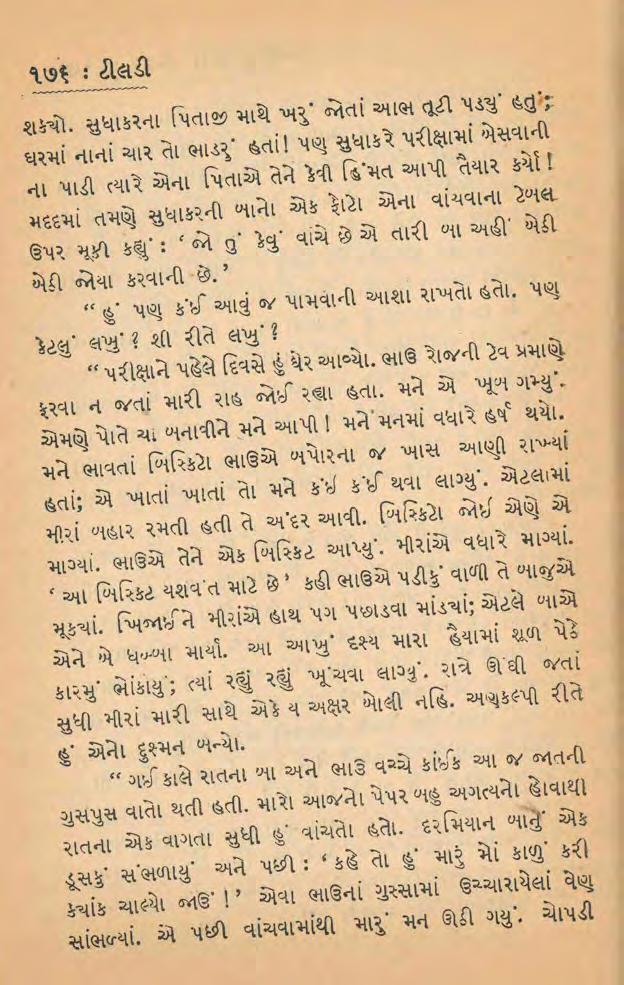 ૧૭૬ : ટીલડી
શક્યો. સુધાકરના પિતાજી માથે ખરું જોતાં આભ તૂટી પડ્યું હતું;
ઘરમાં નાનાં ચાર તો ભાડરું હતાં! પણ સુધાકરે પરીક્ષામાં બેસવાની
ના પાડી ત્યારે એના પિતાએ તેને કેવી હિંમત આપી તૈયાર કર્યો!
મદદમાં તમણે સુધાકરની બાનો એક ફોટો એના વાંચવાના ટેબલ
ઉપર મૂકી કહ્યું : ‘ જો તું કેવું વાંચે છે એ તારી બા અહીં બેઠી
બેઠી જોયા કરવાની છે.’
“ હું પણ કંઈ આવું જ પામવાની આશા રાખતો હતો. પણ
કેટલું લખું ? શી રીતે લખું ?
“ પરીક્ષાને પહેલે દિવસે હું ઘેર આવ્યો. ભાઉ રોજની ટેવ પ્રમાણે
ફરવા ન જતાં મારી રાહ જોઈ રહ્યા હતા. મને એ ખૂબ ગમ્યું.
એમણે પોતે ચા બનાવીને મને આપી ! મને મનમાં વધારે હર્ષ થયો.
મને ભાવતાં બિસ્કિટો ભાઉએ બપોરના જ ખાસ આણી રાખ્યાં
હતાં; એ ખાતાં ખાતાં તો મને કંઈ કંઈ થવા લાગ્યું. એટલામાં
મીરાં બહાર રમતી હતી તે અંદર આવી. બિસ્કિટો જોઈ એણે એ
માગ્યાં. ભાઉએ તેને એક બિસ્કિટ આપ્યું. મીરાંએ વધારે માગ્યાં.
‘ આ બિસ્કિટ યશવંત માટે છે’ કહી ભાઉએ પડીકું વાળી તે બાજુએ
મૂક્યાં. ખિજાઈને મીરાંએ હાથ પગ પછાડવા માંડ્યાં; એટલે બાએ
એને બે ધબ્બા માર્યા. આ આખું દશ્ય મારા હૈયામાં શૂળ પેઠે
કારમું ભોંકાયું; ત્યાં રહ્યું રહ્યું ખૂંચવા લાગ્યું. રાત્રે ઊંઘી જતાં
સુધી મીરાં મારી સાથે એકે ય અક્ષર બોલી નહિ. અણકલ્પી રીતે
હું એનો દુશ્મન બન્યો.
“ ગઈ કાલે રાતના બા અને ભાઉ વચ્ચે કાંઈક આ જ જાતની
ગુસપુસ વાતો થતી હતી. મારો આજનો પેપર બહુ અગત્યનો હોવાથી
રાતના એક વાગતા સુધી હું વાંચતો હતો. દરમિયાન બાનું એક
ડૂસકું સંભળાયું અને પછી : ‘ કહે તો હું મારું મોં કાળું કરી
ક્યાંક ચાલ્યો જાઉં !’ એવા ભાઉનાં ગુસ્સામાં ઉચ્ચારાયેલાં વેણ
સાંભળ્યાં. એ પછી વાંચવામાંથી મારું મન ઊઠી ગયું. ચોપડી